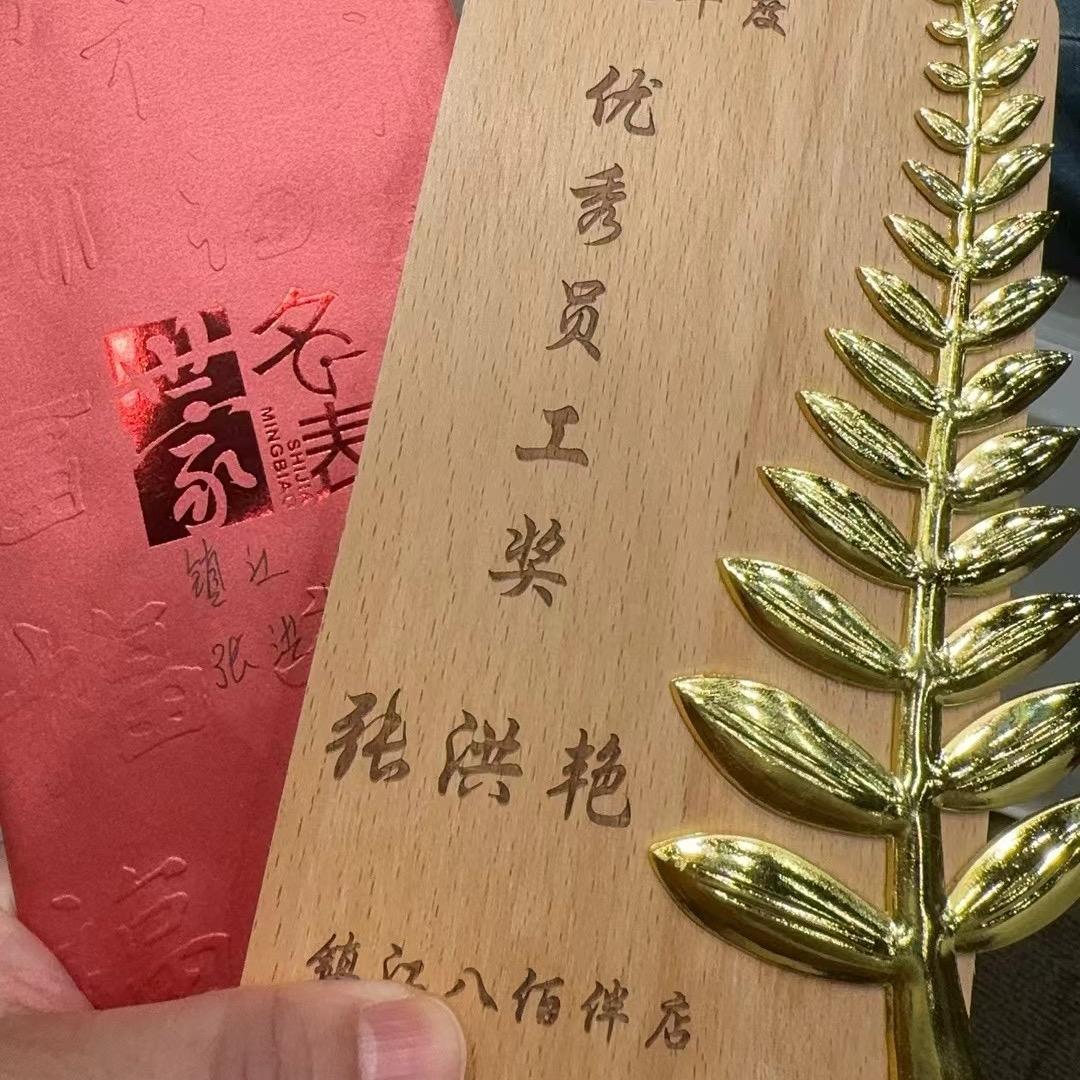 世家
名表
SHIJIA
MINGBIAO
镇江
张洪
年度
优秀员工奖
张洪艳
镇江八佰伴店